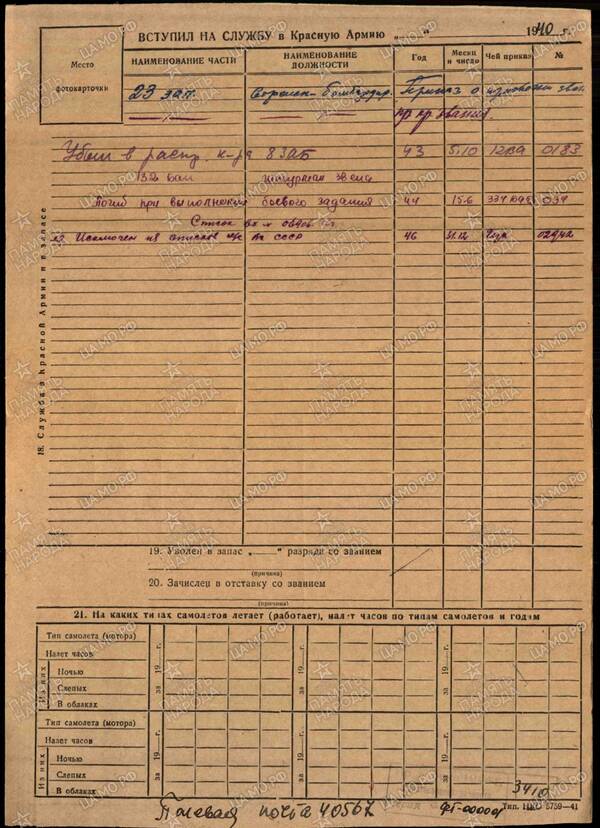 ВСТУПИЛ НА СЛУЖБУ в Красную Армию „ “ 1940 г.
Место фотокарточки
НАИМЕНОВАНИЕ ЧАСТИ
НАИМЕНОВАНИЕ ДОЛЖНОСТИ
Год
Месяц и число
Чей приказ
№
23 зап.
Стрелок-бомбардир.
Приказ о
звания.
Убыл в расп. к-ра 8 ЗАБ
43 5.10 12ВА 0183
132 бап штурман звена
Погиб при выполнении боевого задания
44 15.6 334 бад 039
Исключен из списков СССР
46 31.12 02942
18. Служба в Красной Армии и в запасе
19. Уволен в запас „ “ разряда со званием
(причина)
20. Зачислен в отставку со званием
(причина)
21. На каких типах самолетов летает (работает), налет часов по типам самолетов и годам
Тип самолета (мотора)
Налет часов
Из них
Ночью
Слепых
В облаках
за 19 —г.
за 19 —г.
за 19 —г.
Тип самолета (мотора)
Налет часов
Из них
Ночью
Слепых
В облаках
за 19 —г.
за 19 —г.
за 19 —г.
3410
Полевая почта 40567
Тип. НКО 5759—41
ЦАМО.РФ
ПАМЯТЬ НАРОДА